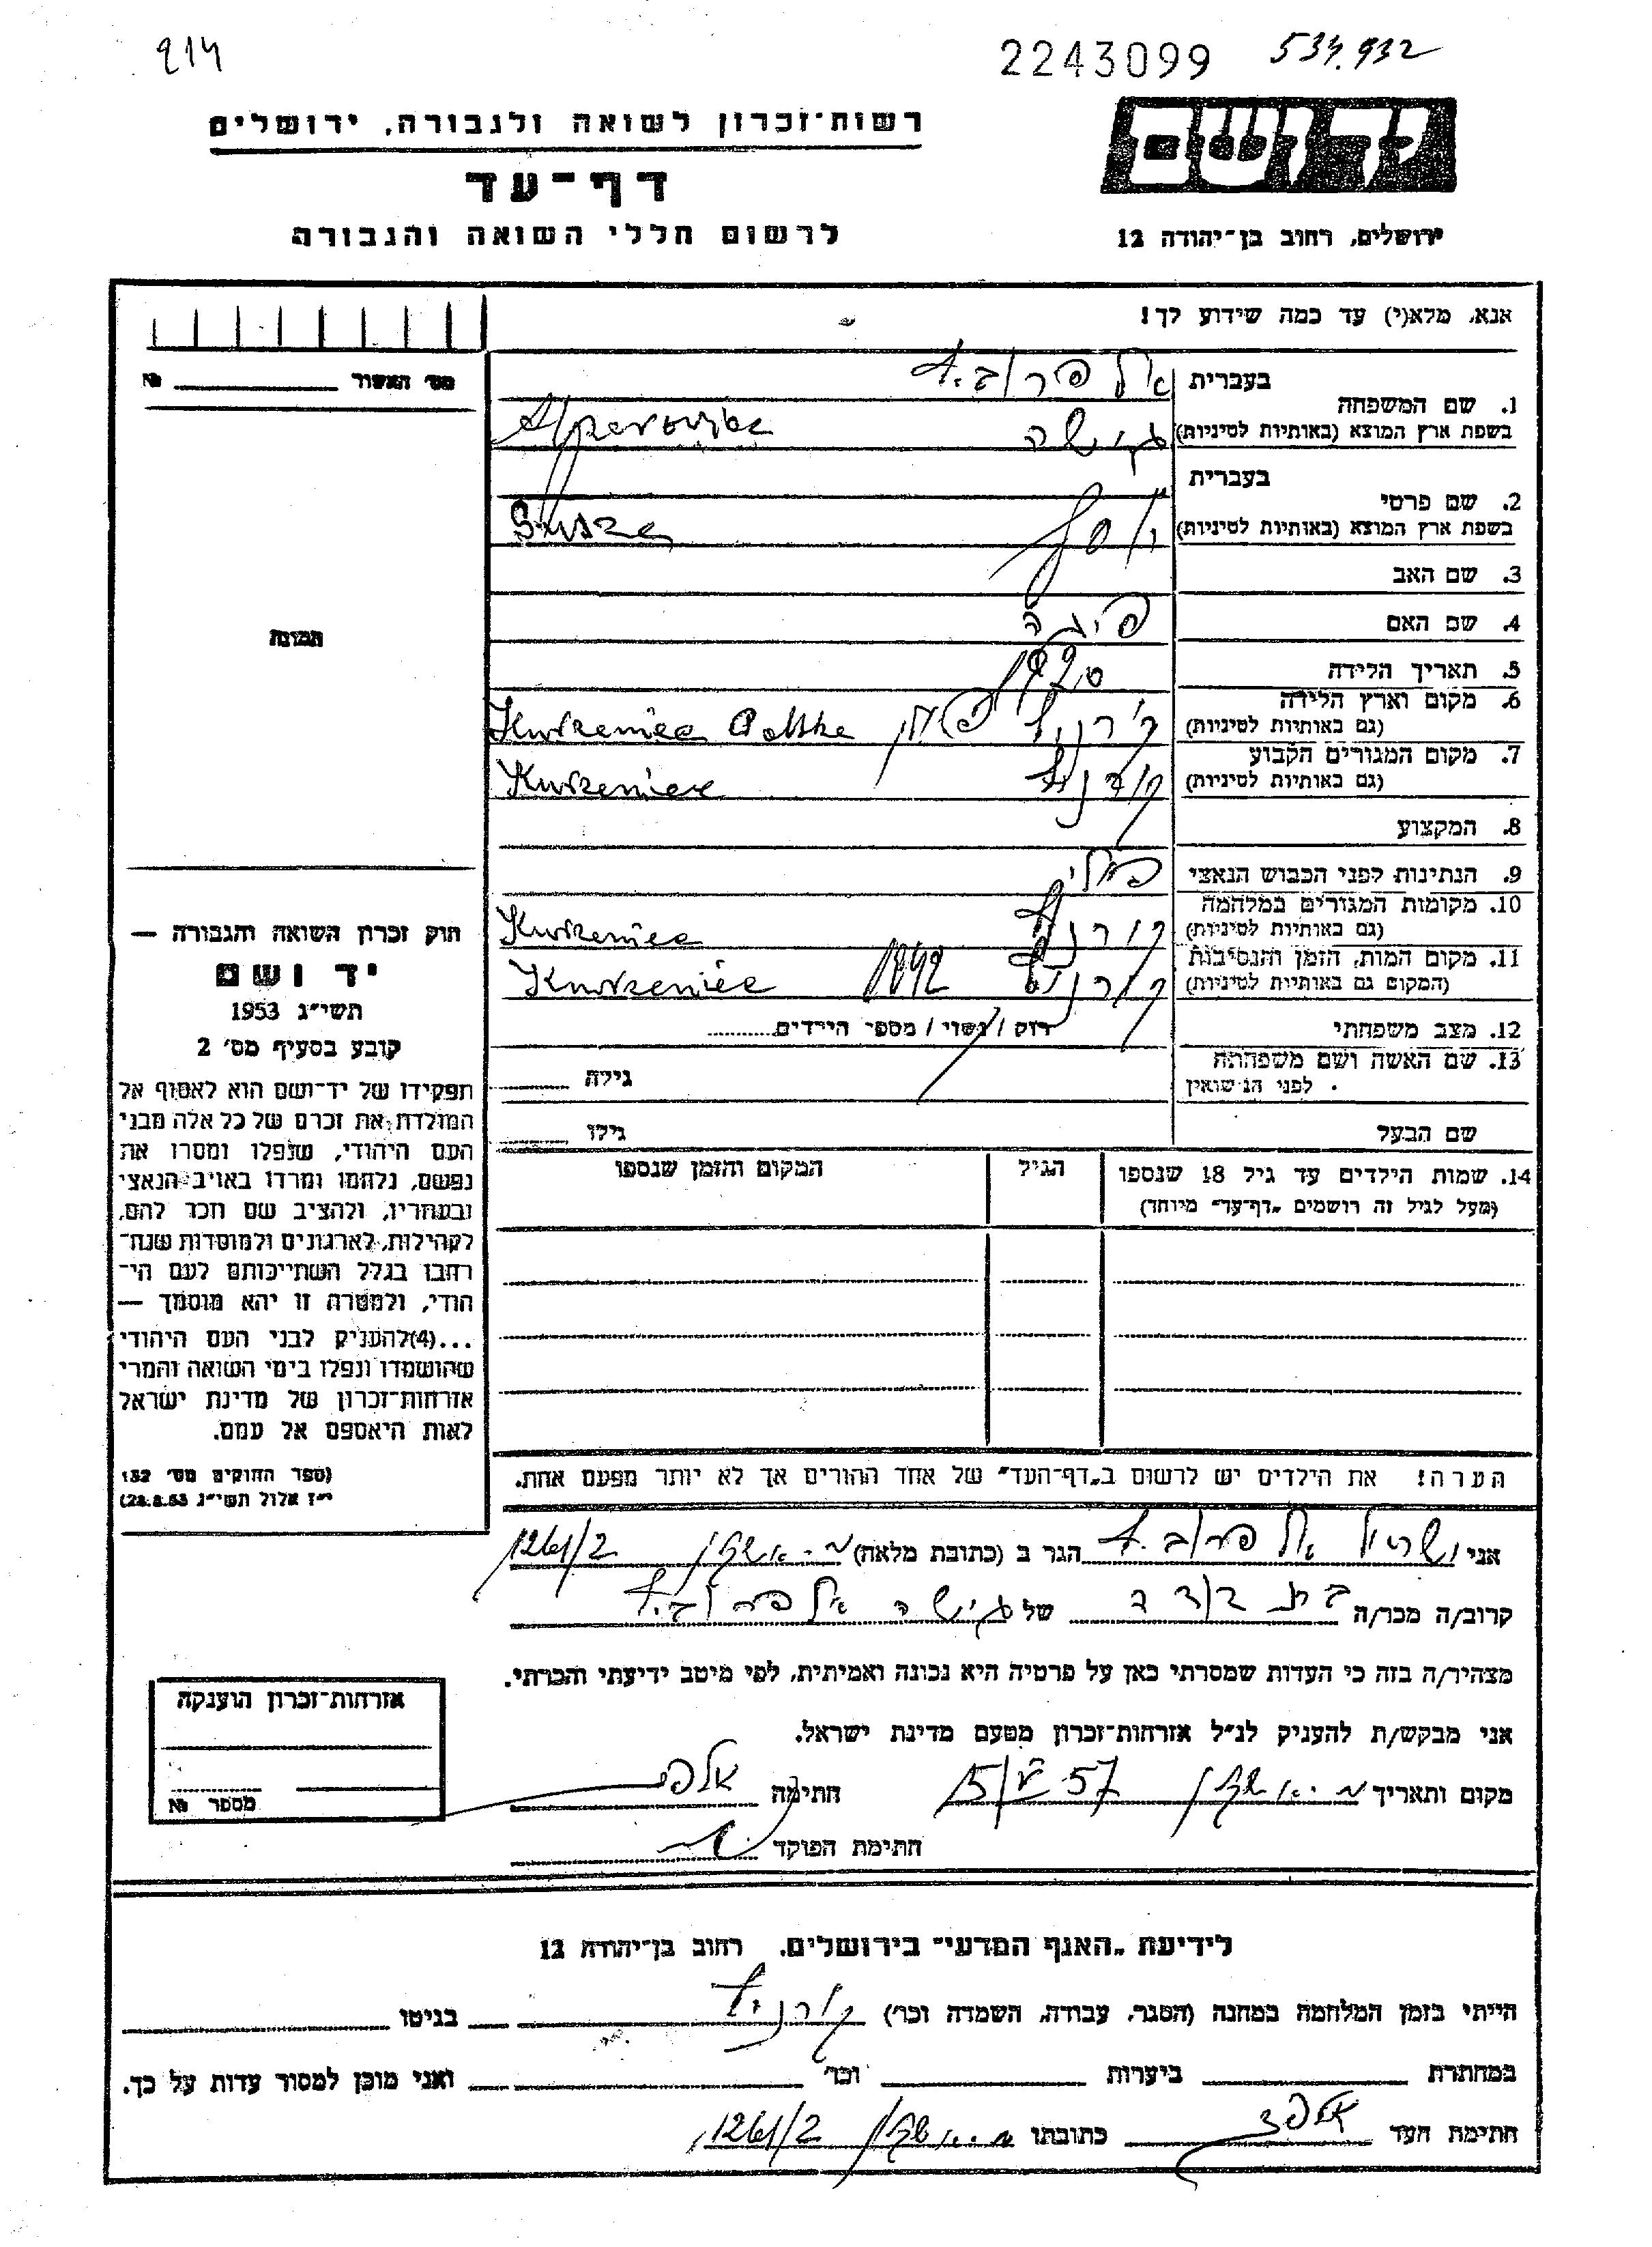 214
2243099 534.932
רשות־זכרון לשואה ולגבורה, ירושלים
יד ושם
דף־עד
לרשום חללי השואה והגבורה
ירושלים, רחוב בן־יהודה 12
אנא, מלא(י) עד כמה שידוע לך!
מס׳ האשור № 
בעברית
1. שם המשפחה
אלפרוביץ
בשפת ארץ המוצא (באותיות לטיניות)
Alperowicz
בעברית
2. שם פרטי
בשפת ארץ המוצא (באותיות לטיניות)
יוסף
3. שם האב
4. שם האם
5. תאריך הלידה
6. מקום וארץ הלידה
(גם באותיות לטיניות)
קורניץ פולין Kurzeniec Polska
7. מקום המגורים הקבוע
(גם באותיות לטיניות)
קורניץ Kurzeniec
8. המקצוע
9. הנתינות לפני הכבוש הנאצי
פולני
10. מקומות המגורים במלחמה
(גם באותיות לטיניות)
קורניץ Kurzeniec
11. מקום המות, הזמן והנסיבות
(המקום גם באותיות לטיניות)
קורניץ 1942 Kurzeniec
12. מצב משפחתי
רוק / נשוי / מספר הילדים
13. שם האשה ושם משפחתה
לפני הנישואין
גילה
שם הבעל
גילו
14. שמות הילדים עד גיל 18 שנספו
(מעל לגיל זה רושמים „דף־עד״ מיוחד)
הגיל
המקום והזמן שנספו
הערה! את הילדים יש לרשום ב„דף־העד״ של אחד ההורים אך לא יותר מפעם אחת.
התמונה
חוק זכרון השואה והגבורה —
יד ושם
תשי״ג 1953
קובע בסעיף מס׳ 2
תפקידו של יד־ושם הוא לאסוף אל
המולדת את זכרם של כל אלה מבני
העם היהודי, שנפלו ומסרו את
נפשם, נלחמו ומרדו באויב הנאצי
ובעוזריו, ולהציב שם וזכר להם,
לקהילות, לארגונים ולמוסדות שנח־
רחבו בגלל השתייכותם לעם הי־
הודי, ולמטרה זו יהא מוסמך —
...(4)להעניק לבני העם היהודי
שהושמדו ונפלו בימי השואה והמרי
אזרחות־זכרון של מדינת ישראל
לאות היאספם אל עמם.
(ספר החוקים מס׳ 132
י״ז אלול תשי״ג 28.8.53)
אני ישראל אלפרוביץ הגר ב (כתובת מלאה) אשקלון 1261/2
קרוב/ה מכר/ה בת דודה של אלפרוביץ
מצהיר/ה בזה כי העדות שמסרתי כאן על פרטיה היא נכונה ואמיתית, לפי מיטב ידיעתי והכרתי.
אני מבקש/ת להעניק לנ״ל אזרחות־זכרון מטעם מדינת ישראל.
מקום ותאריך אשקלון 57 חתימה אלפ
חתימת הפוקד
אזרחות־זכרון הוענקה
מספר №
לידיעת „האגף המדעי״ בירושלים. רחוב בן־יהודה 12
הייתי בזמן המלחמה במחנה (הסגר, עבודה, השמדה וכר׳) קורניץ בגיטו
במחתרת ביערות וכר׳ ואני מוכן למסור עדות על כך.
חתימת העד אלפ כתובתו אשקלון 1261/2